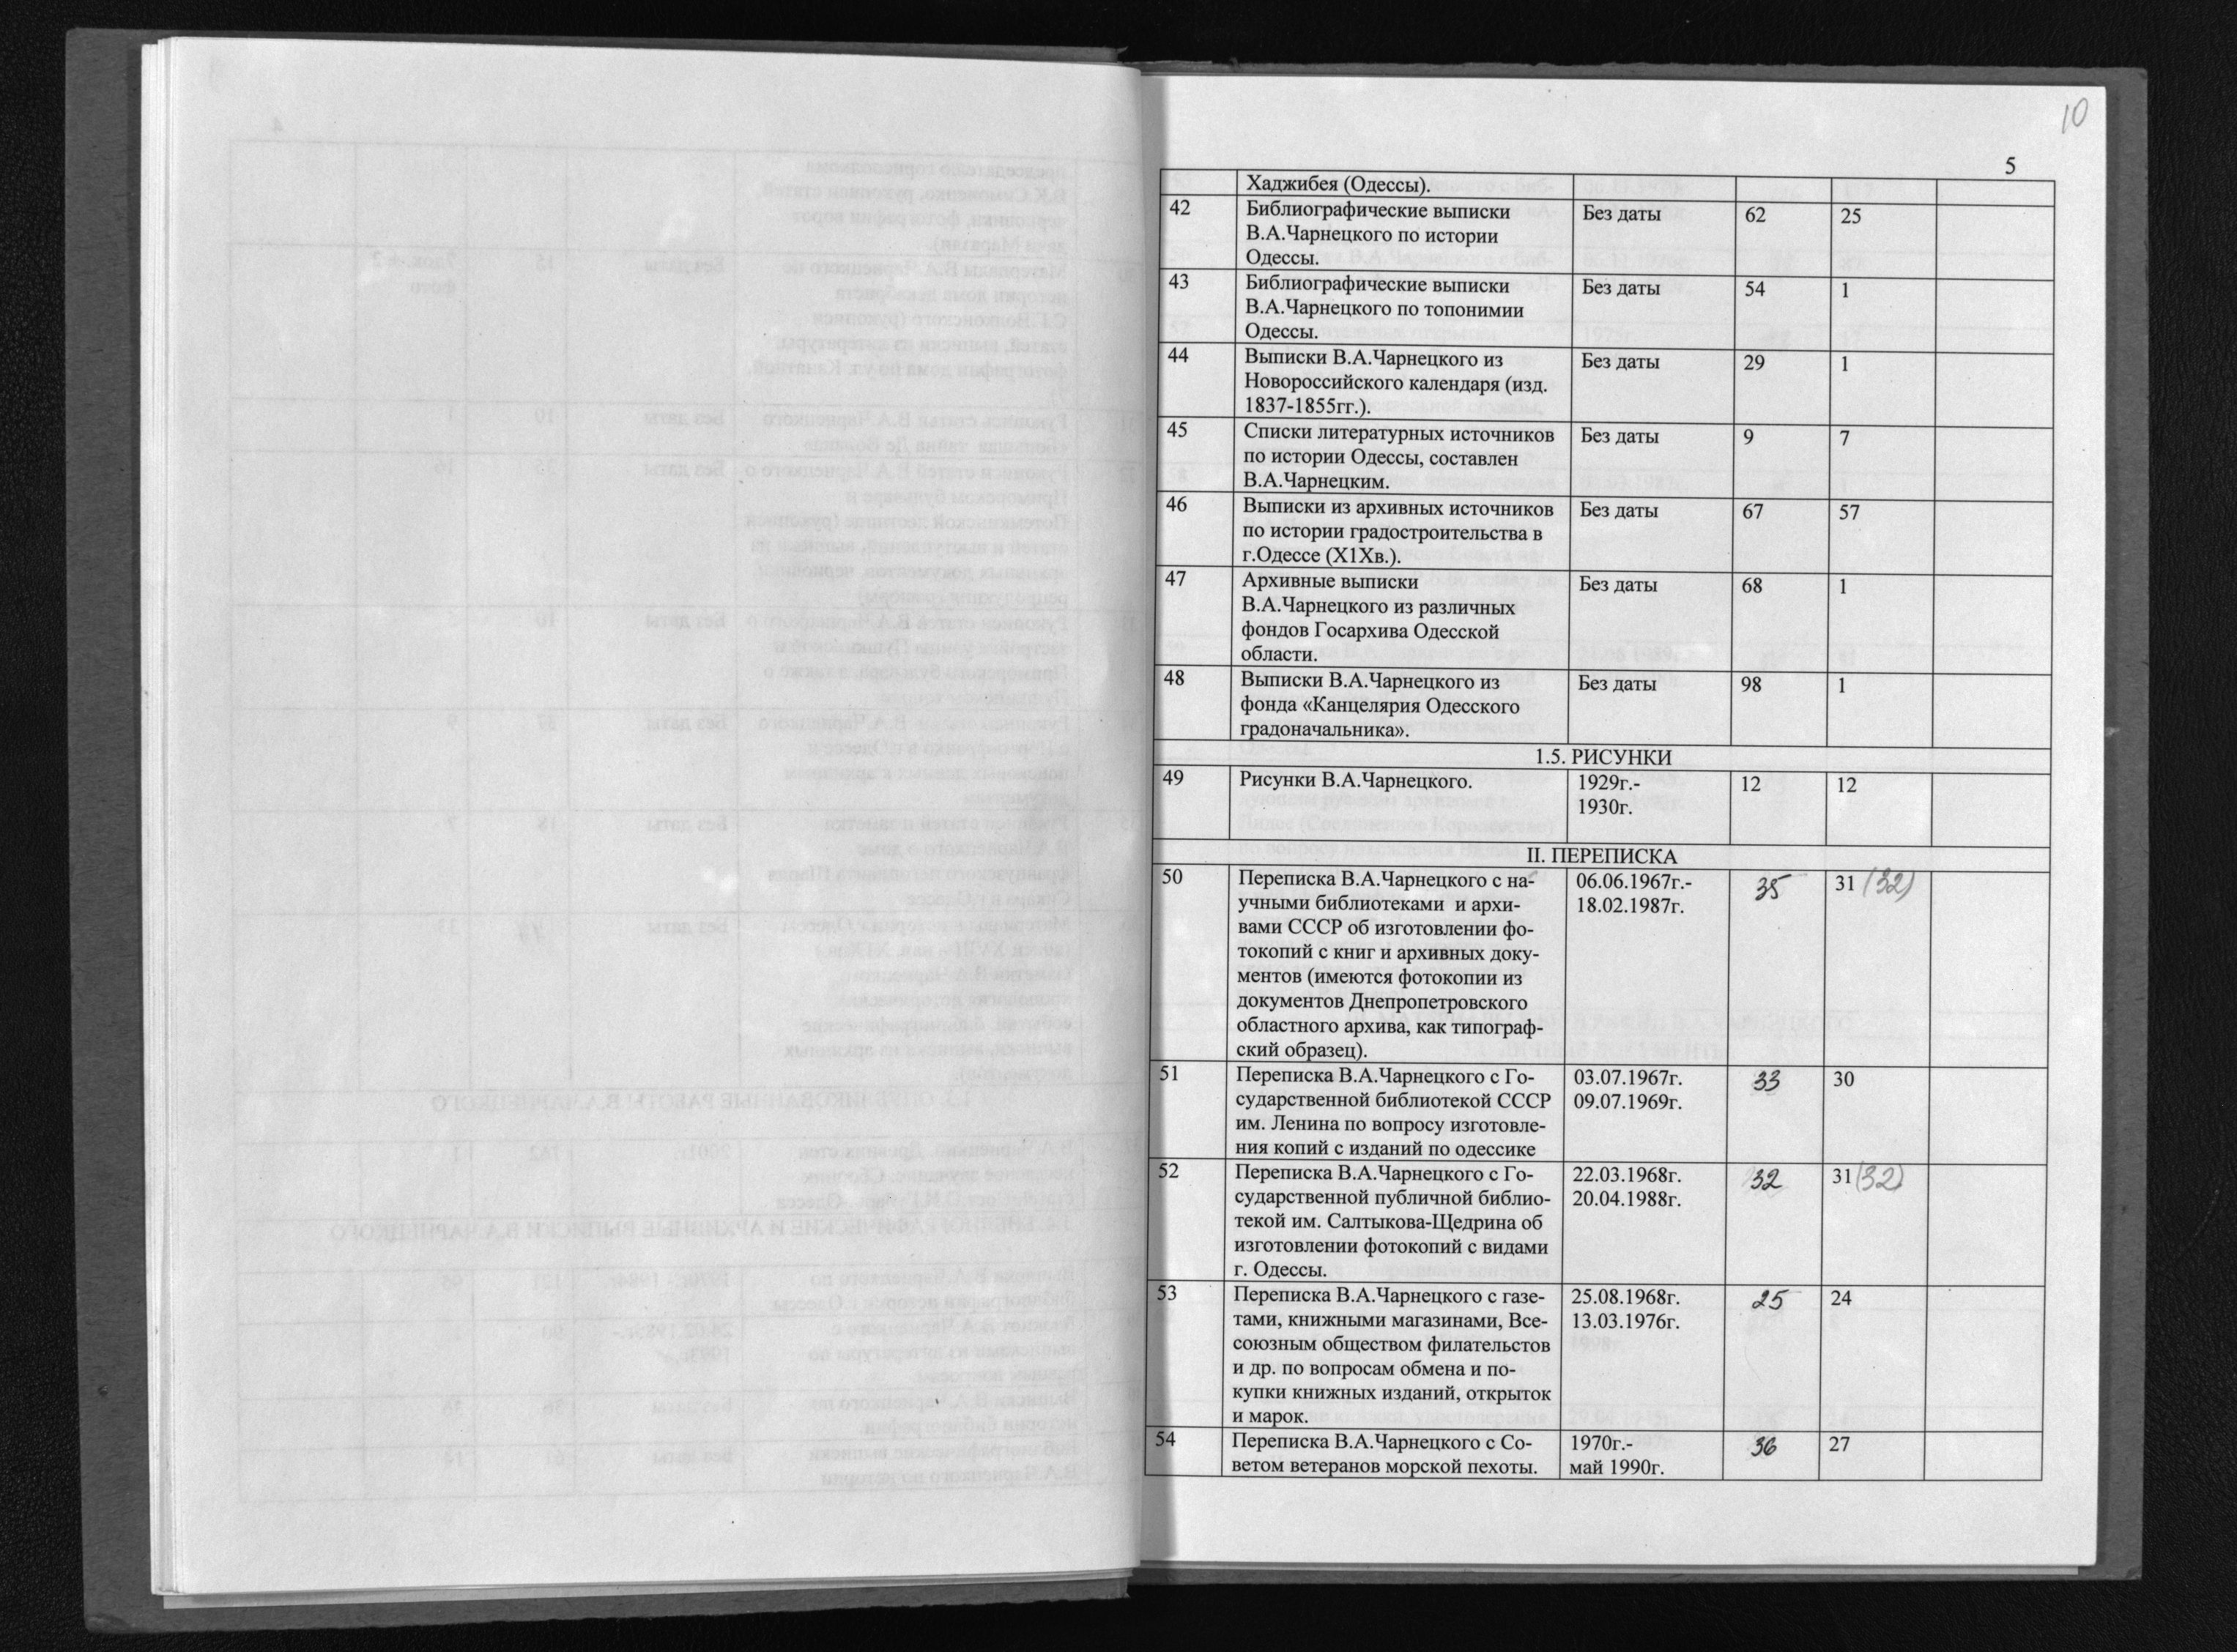 10
5
Хаджибея (Одессы).
42 Библиографические выписки Без даты 62 25
В.А.Чарнецкого по истории
Одессы.
43 Библиографические выписки Без даты 54 1
В.А.Чарнецкого по топонимии
Одессы.
44 Выписки В.А.Чарнецкого из Без даты 29 1
Новороссийского календаря (изд.
1837-1855гг.).
45 Списки литературных источников Без даты 9 7
по истории Одессы, составлен
В.А.Чарнецким.
46 Выписки из архивных источников Без даты 67 57
по истории градостроительства в
г.Одессе (Х1Хв.).
47 Архивные выписки Без даты 68 1
В.А.Чарнецкого из различных
фондов Госархива Одесской
области.
48 Выписки В.А.Чарнецкого из Без даты 98 1
фонда «Канцелярия Одесского
градоначальника».
1.5. РИСУНКИ
49 Рисунки В.А.Чарнецкого. 1929г.- 12 12
1930г.
II. ПЕРЕПИСКА
50 Переписка В.А.Чарнецкого с на- 06.06.1967г.- 35 31 (32)
учными библиотеками и архи- 18.02.1987г.
вами СССР об изготовлении фо-
токопий с книг и архивных доку-
ментов (имеются фотокопии из
документов Днепропетровского
областного архива, как типограф-
ский образец).
51 Переписка В.А.Чарнецкого с Го- 03.07.1967г. 33 30
сударственной библиотекой СССР 09.07.1969г.
им. Ленина по вопросу изготовле-
ния копий с изданий по одессике
52 Переписка В.А.Чарнецкого с Го- 22.03.1968г. 32 31 (32)
сударственной публичной библио- 20.04.1988г.
текой им. Салтыкова-Щедрина об
изготовлении фотокопий с видами
г. Одессы.
53 Переписка В.А.Чарнецкого с газе- 25.08.1968г. 25 24
тами, книжными магазинами, Все- 13.03.1976г.
союзным обществом филательстов
и др. по вопросам обмена и по-
купки книжных изданий, открыток
и марок.
54 Переписка В.А.Чарнецкого с Со- 1970г.- 36 27
ветом ветеранов морской пехоты. май 1990г.